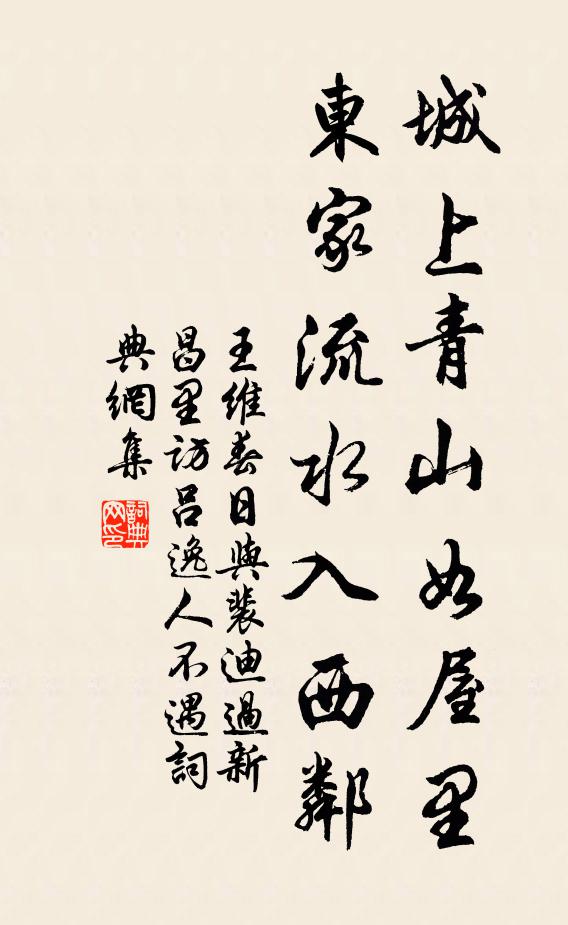 城上青山如屋里
東家流水入西鄰
王維春日與裴迪過新
昌里訪呂逸人不遇詞
典網集
詞典网印